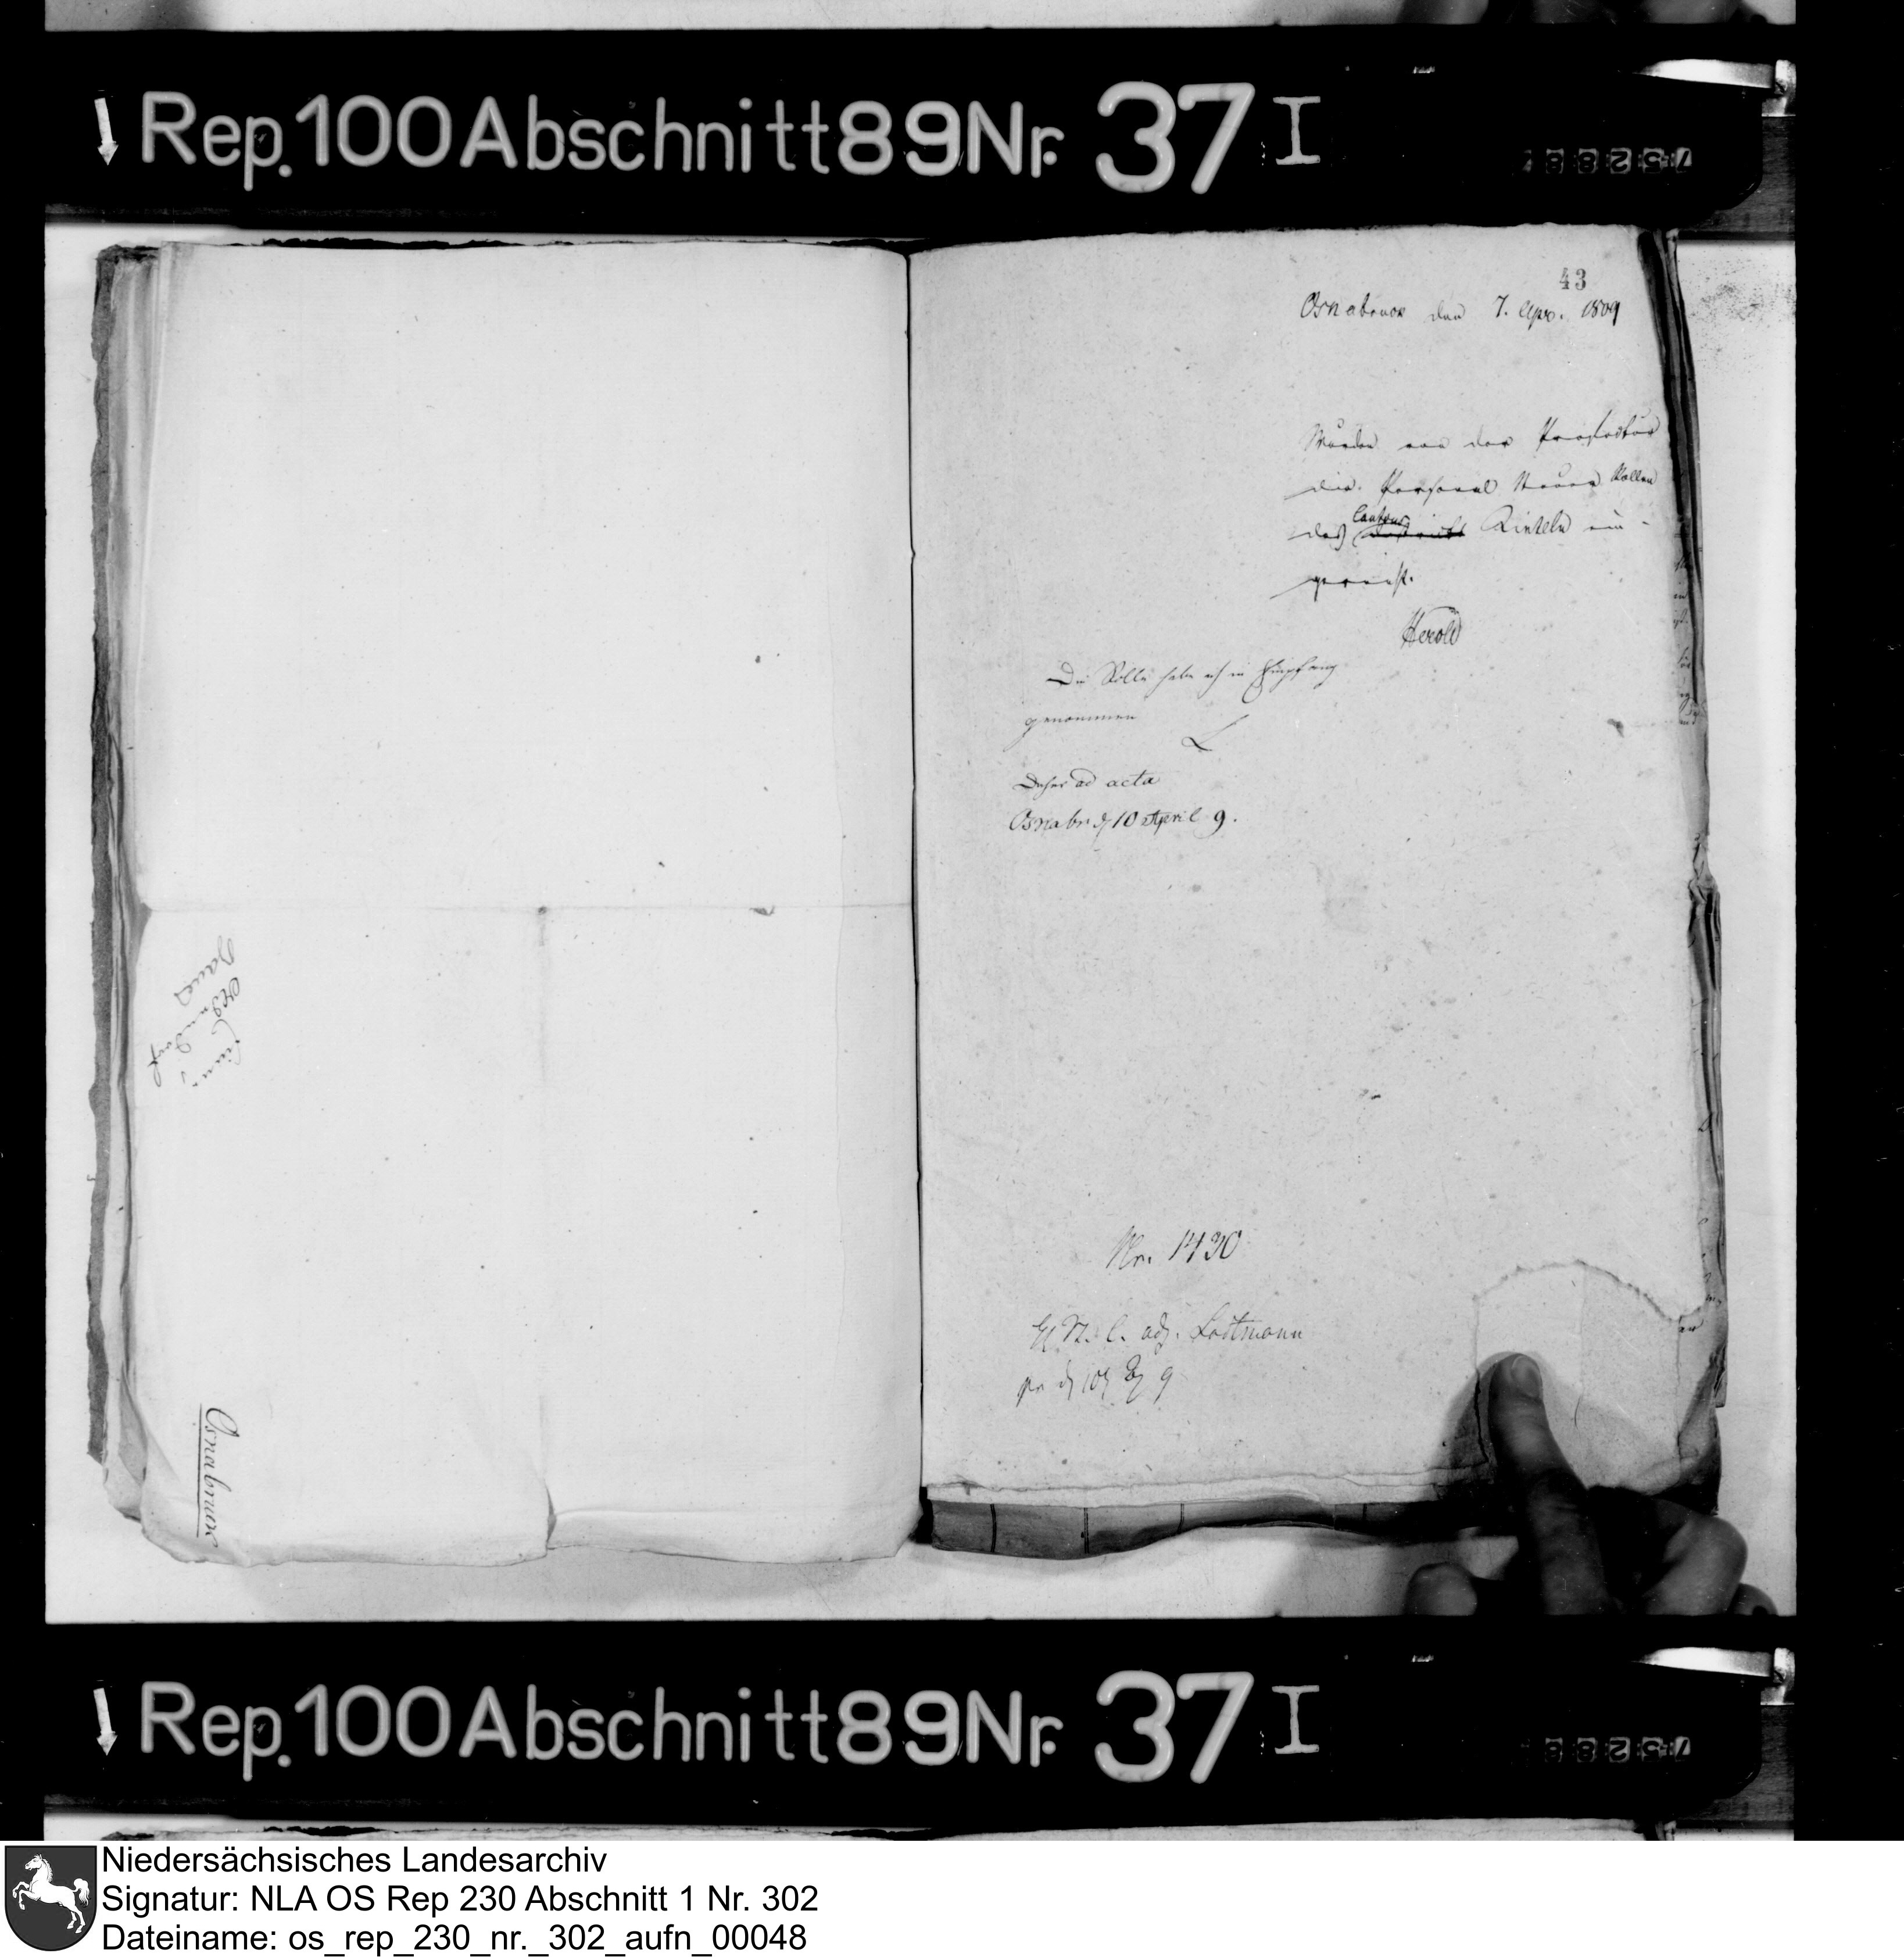 Rep. 100 Abschnitt 89 Nr. 37 I
43
Osnabruck den 7. Apr. 1809
Wurden von der Praefectur
die Personal Steuer Rollen
des Cantons Rinteln ein-
gereicht.
Herold
Die Rolle habe ich in Empfang
genommen
L
Daher ad acta
Osnabr d 10 April 9.
Nr. 1430
adj. Lodtmann
Osnabruck
Rep. 100 Abschnitt 89 Nr. 37 I
Niedersächsisches Landesarchiv
Signatur: NLA OS Rep 230 Abschnitt 1 Nr. 302
Dateiname: os_rep_230_nr._302_aufn_00048